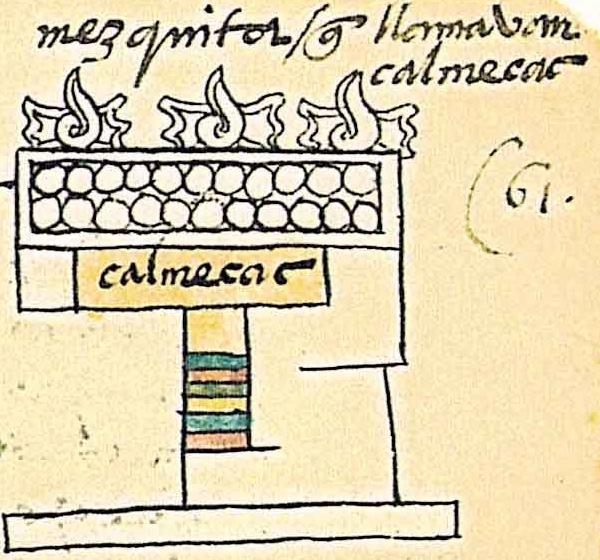 mezquita/q̃ llamavan
calmecac
61.
calmecac